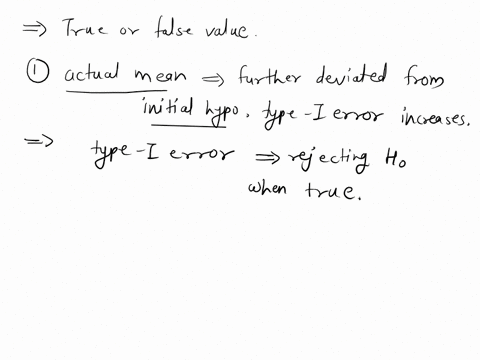 ⇒ True or false value.
① actual mean ⇒ further deviated from
initial hypo, type-I error increases.
⇒ type-I error ⇒ rejecting H₀
when true.